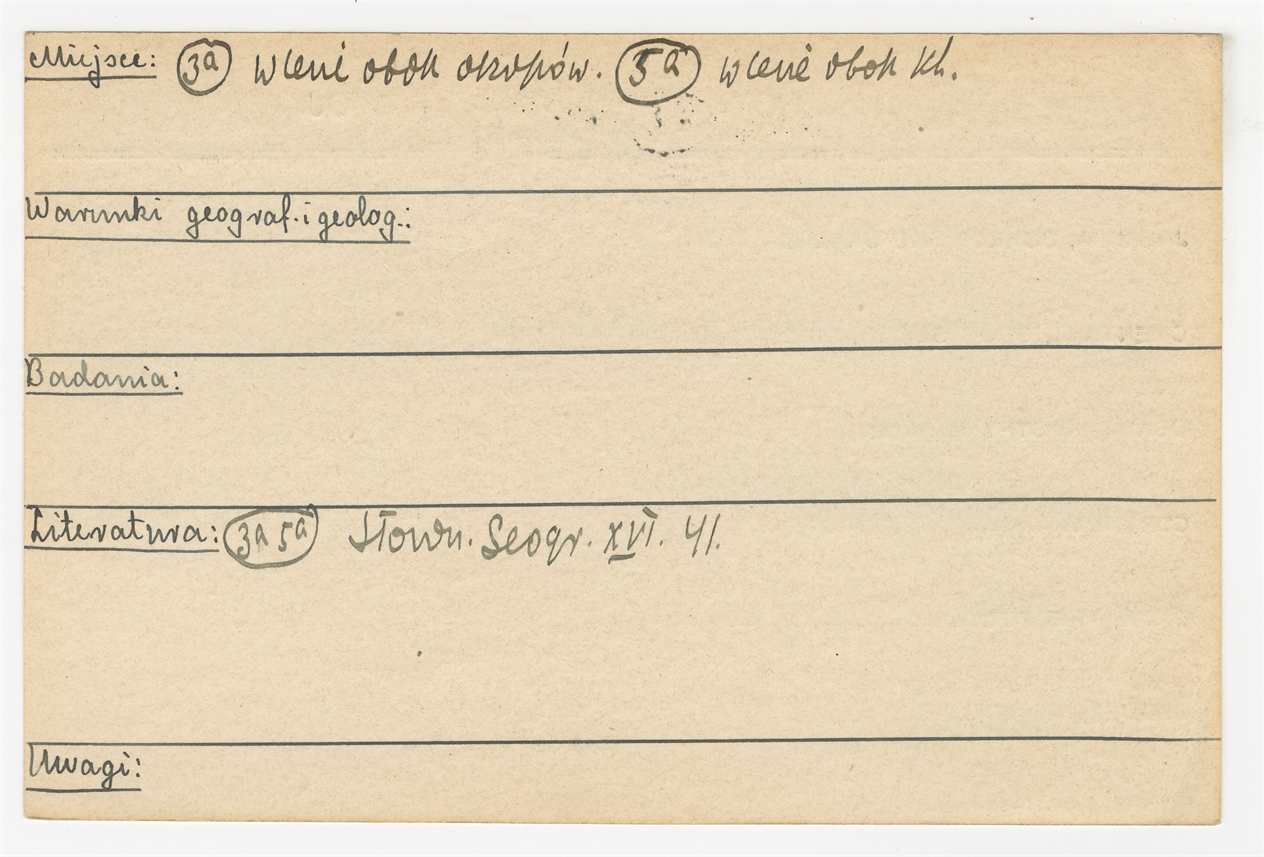 Miejsce: 3a w lenie obok okopów. 5a w lenie obok kł.
Warunki geograf. i geolog.:
Badania:
Literatura: 3a 5a Słown. Geogr. XVI. 41.
Uwagi: